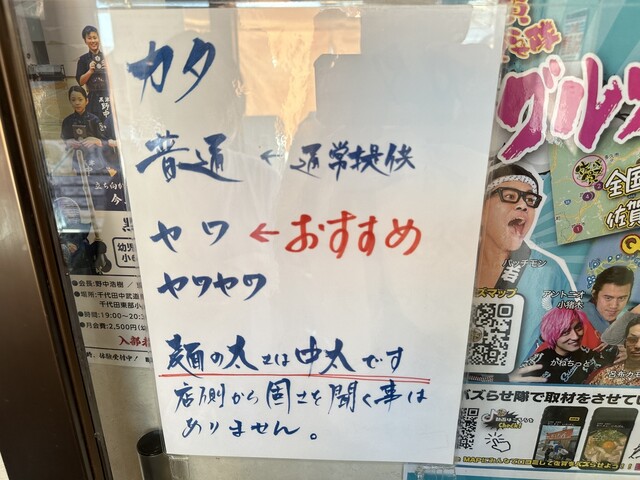 カタ
普通 ← 通常提供
ヤワ ← おすすめ
ヤワヤワ
麺の太さは中太です
店側から固さを聞く事は
ありません。
立ち向か
今
幼児
小
●会長:野中浩樹/
●場所:千代田中武道
千代田東部小
●時間:19:00〜20:3
●月会費:2,500円(
入部
験受付中!
グル
全国
佐賀
バッチモン
ズマップ
アントニオ
小猪木
かねちー
呂布カ
バズらせ隊で取材をさせてい
Check!